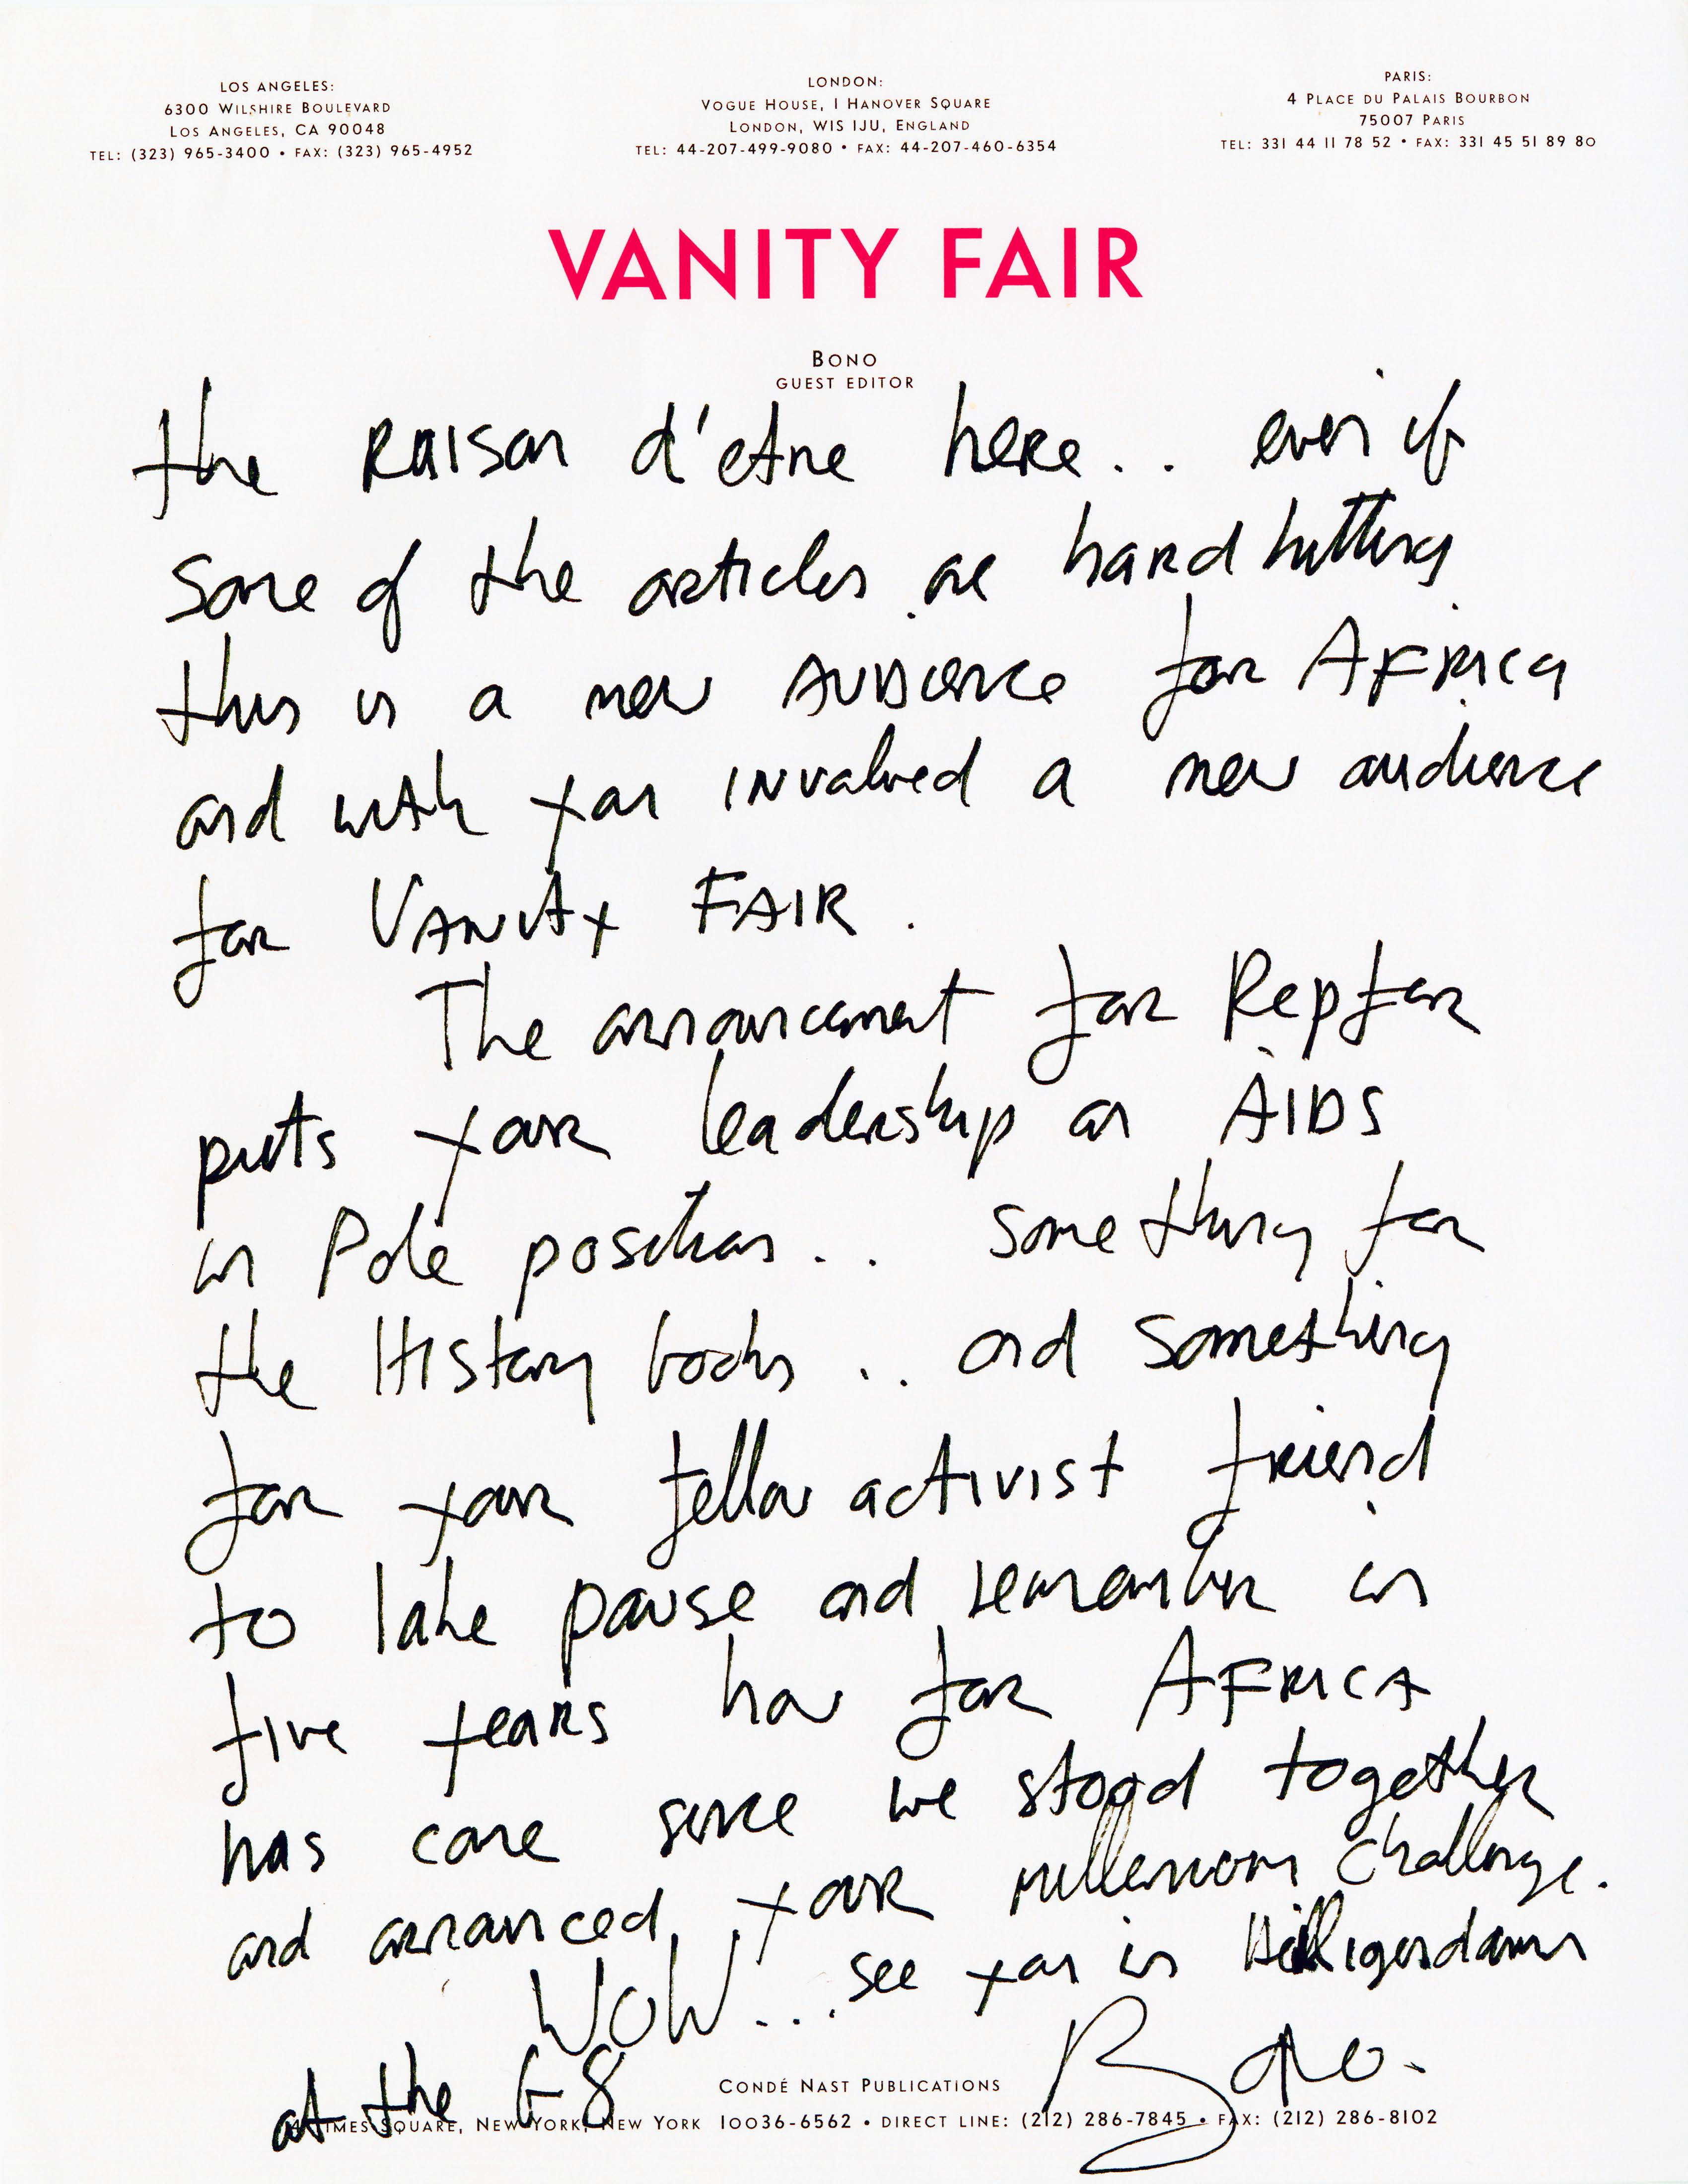 LOS ANGELES:
6300 WILSHIRE BOULEVARD
LOS ANGELES, CA 90048
TEL: (323) 965-3400 • FAX: (323) 965-4952
LONDON:
VOGUE HOUSE, 1 HANOVER SQUARE
LONDON, W1S 1JU, ENGLAND
TEL: 44-207-499-9080 • FAX: 44-207-460-6354
PARIS:
4 PLACE DU PALAIS BOURBON
75007 PARIS
TEL: 331 44 11 78 52 • FAX: 331 45 51 89 80
VANITY FAIR
BONO
GUEST EDITOR
the Raison d'etre here.. even if
Some of the articles are hard hitting
this is a new AUDience for AFRica
and with you INvolved a new audience
for VANity FAIR.
The announcement for Repfer
puts your leadership on AIDS
in Pole position.. Something for
the HIStory books.. and Something
for your fellow activist friend
to take pause and remember in
five years how far AFRICA
has come since we stood together
and announced your millenium challenge.
WOW... see you in Heiligendamm
at the G8
Bono.
CONDÉ NAST PUBLICATIONS
4 TIMES SQUARE, NEW YORK, NEW YORK 10036-6562 • DIRECT LINE: (212) 286-7845 • FAX: (212) 286-8102